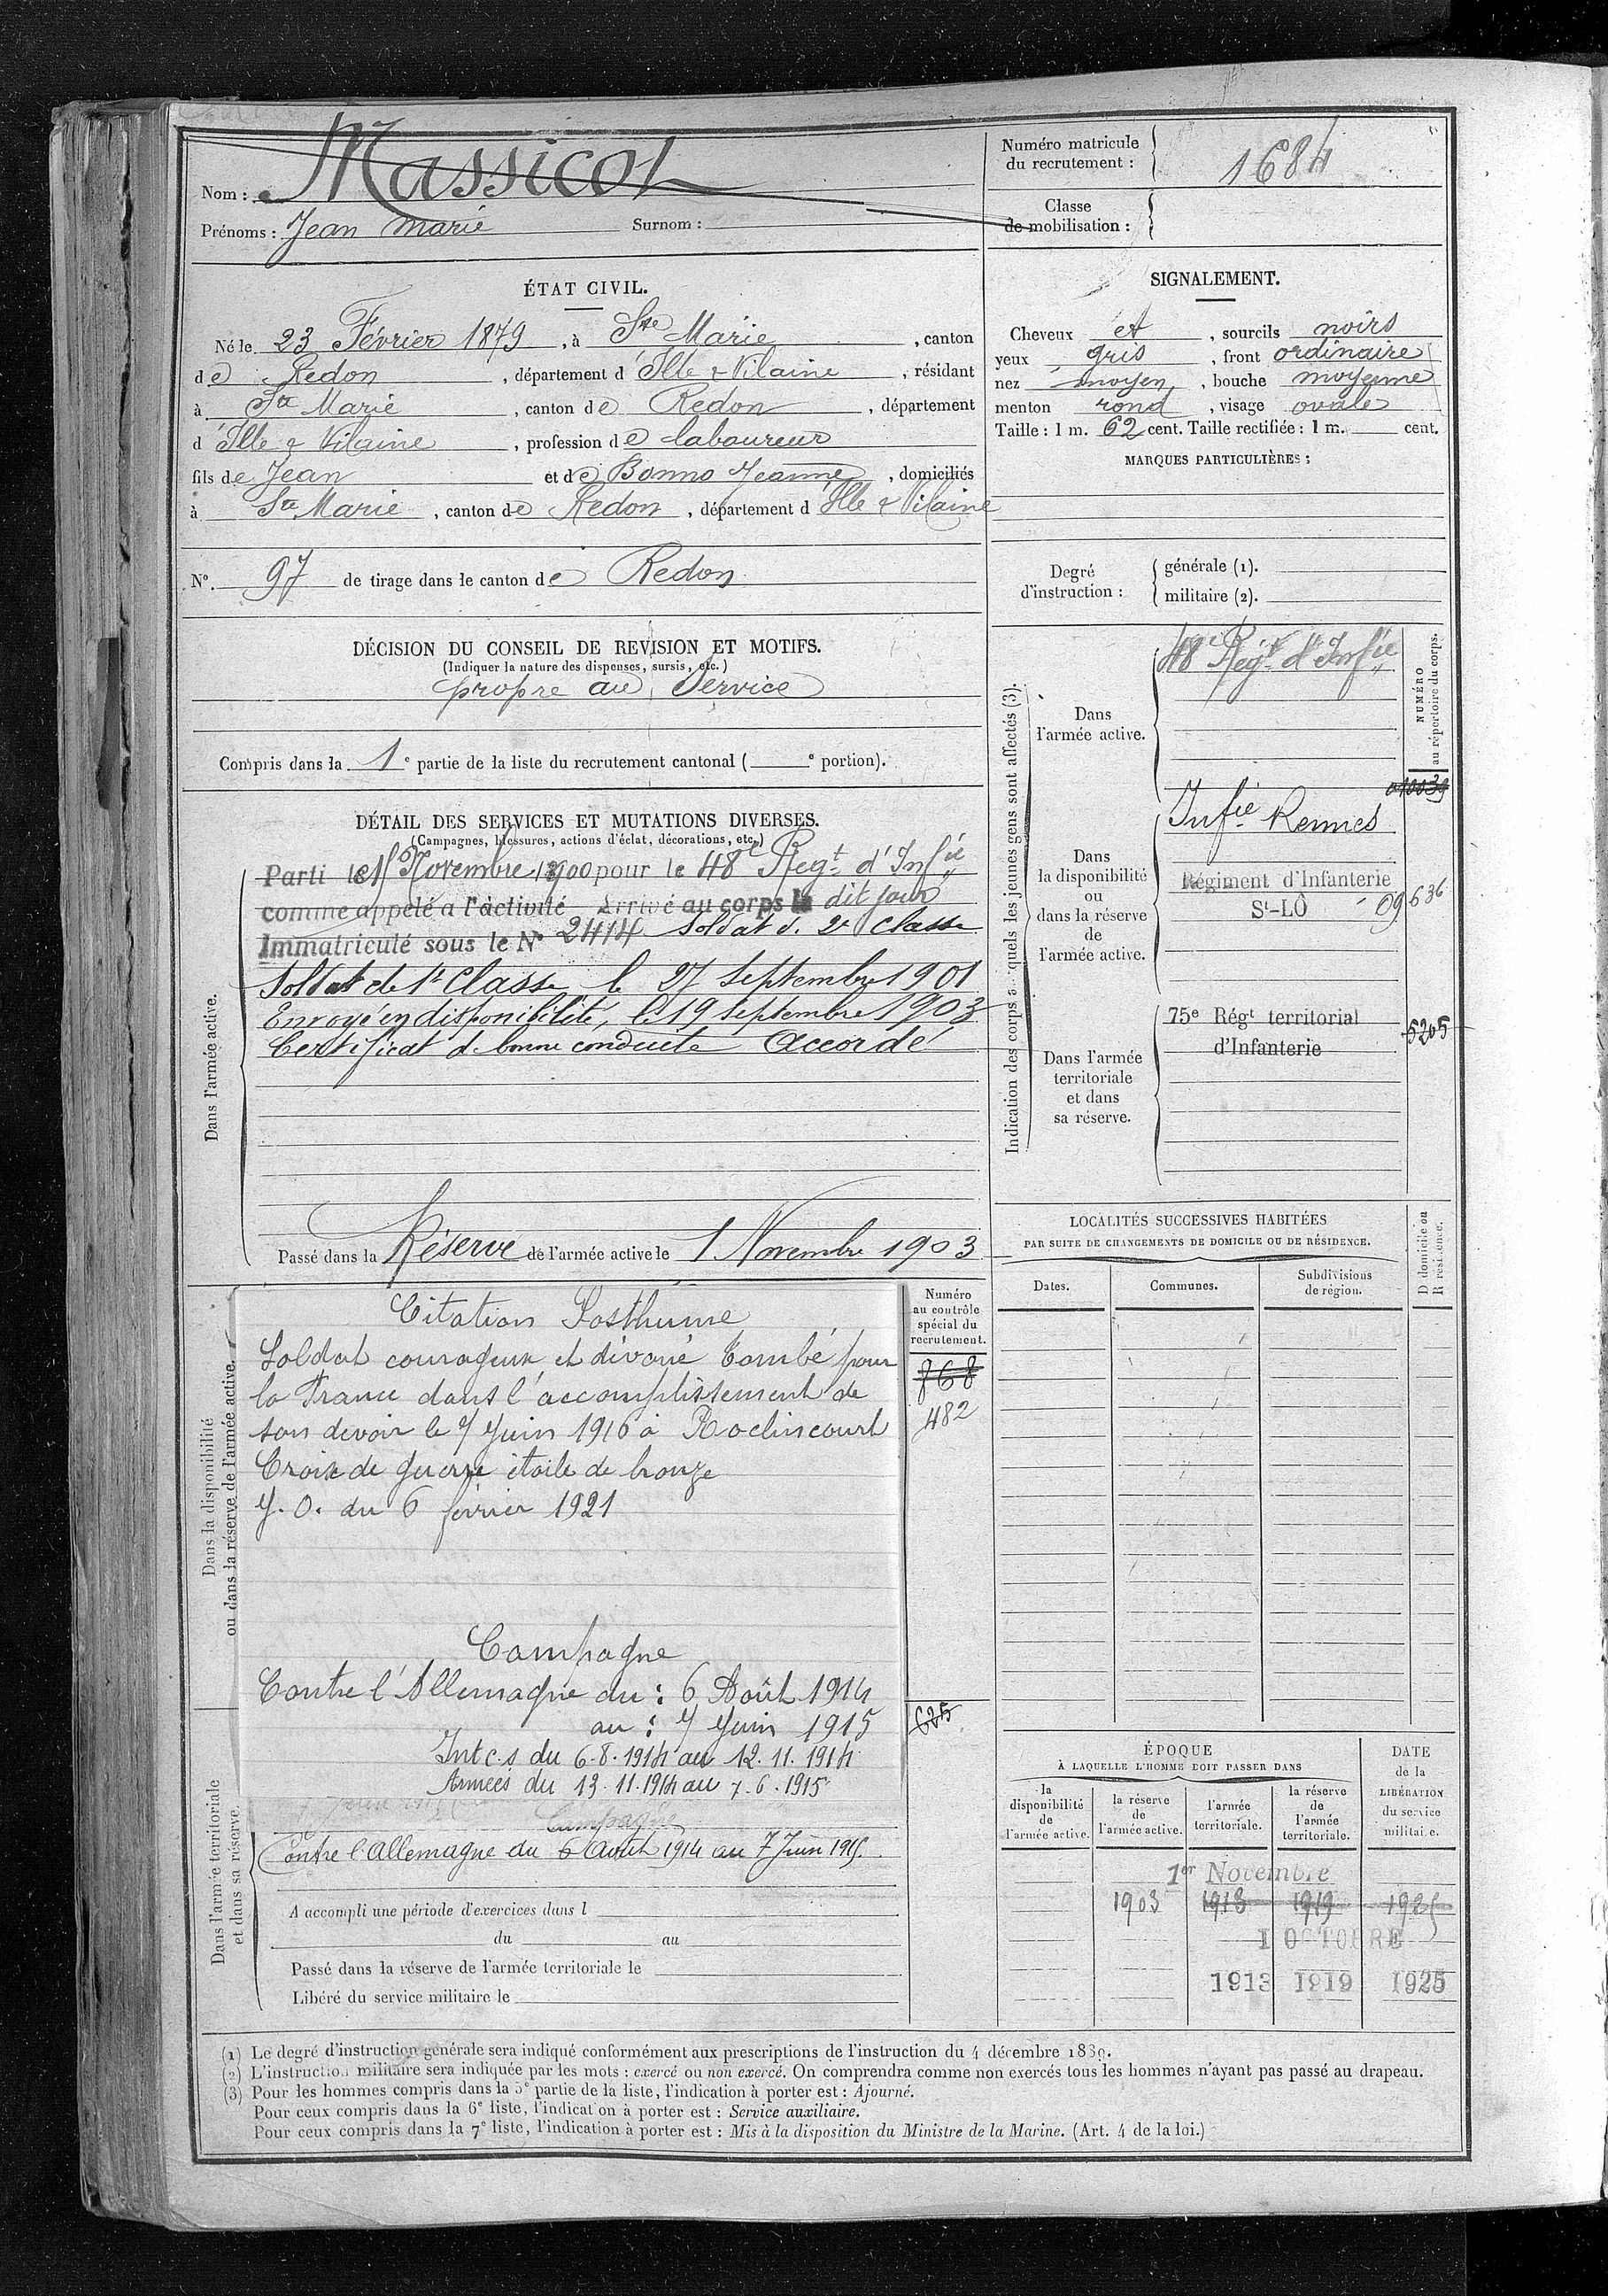 Nom : Massicot
Prénoms : Jean Marie Surnom :
Numéro matricule
du recrutement : 1684
Classe
de mobilisation :
ÉTAT CIVIL.
Né le 23 Février 1879, à Ste Marie, canton
de Redon, département d'Ille & Vilaine, résidant
à Ste Marie, canton de Redon, département
d'Ille & Vilaine, profession de laboureur
fils de Jean et de Bonno Jeanne, domiciliés
à Ste Marie, canton de Redon, département d'Ille & Vilaine
N° 97 de tirage dans le canton de Redon
SIGNALEMENT.
Cheveux et, sourcils noirs
yeux gris, front ordinaire
nez moyen, bouche moyenne
menton rond, visage ovale
Taille : 1 m. 62 cent. Taille rectifiée : 1 m. cent.
MARQUES PARTICULIÈRES :
Degré
d'instruction :
générale (1).
militaire (2).
DÉCISION DU CONSEIL DE REVISION ET MOTIFS.
(Indiquer la nature des dispenses, sursis, etc.)
propre au Service
Compris dans la 1e partie de la liste du recrutement cantonal ( e portion).
DÉTAIL DES SERVICES ET MUTATIONS DIVERSES.
(Campagnes, blessures, actions d'éclat, décorations, etc.)
Dans l'armée active.
Parti le Novembre 1900 pour le 48e Regt d'Infie
comme appelé a l'activité Arrivé au corps le dit jour
Immatriculé sous le N° 2414 Soldat de 2e Classe
Soldat de 1e Classe le 27 Septembre 1901
Envoyé en disponibilité, le 19 Septembre 1903
Certificat de bonne conduite Accordé
Passé dans la Réserve de l'armée active le 1 Novembre 1903
Indication des corps auxquels les jeunes gens sont affectés (3).
NUMÉRO
au répertoire du corps.
Dans
l'armée active.
48e Regt d'Infie
Dans
la disponibilité
ou
dans la réserve
de
l'armée active.
Infie Rennes
Régiment d'Infanterie
St-LÔ 09636
Dans l'armée
territoriale
et dans
sa réserve.
75e Régt territorial
d'Infanterie
5205
LOCALITÉS SUCCESSIVES HABITÉES
PAR SUITE DE CHANGEMENTS DE DOMICILE OU DE RÉSIDENCE.
Dates. Communes. Subdivisions
de région.
D domicile ou
R résidence.
Dans la disponibilité
ou dans la réserve de l'armée active.
Numéro
au contrôle
spécial du
recrutement.
868
482
Citation Posthume
Soldat courageux et dévoué tombé pour
la France dans l'accomplissement de
son devoir le 7 Juin 1916 à Roclincourt
Croix de guerre étoile de bronze
J. O. du 6 février 1921
Campagne
Contre l'Allemagne du : 6 Août 1914
au : 7 Juin 1915
Int c.s du 6.8.1914 au 12.11.1914
Armées du 13.11.1914 au 7.6.1915
625
Dans l'armée territoriale
et dans sa réserve.
Campagne
Contre l'Allemagne du 6 Août 1914 au 7 Juin 1915.
A accompli une période d'exercices dans l
du au
Passé dans la réserve de l'armée territoriale le
Libéré du service militaire le
ÉPOQUE
À LAQUELLE L'HOMME DOIT PASSER DANS
la
disponibilité
de
l'armée active.
la réserve
de
l'armée active.
l'armée
territoriale.
la réserve
de
l'armée
territoriale.
DATE
de la
LIBÉRATION
du service
militaire.
1er Novembre
1903 1913 1919 1925
1 OCTOBRE
1913 1919 1925
(1) Le degré d'instruction générale sera indiqué conformément aux prescriptions de l'instruction du 4 décembre 1889.
(2) L'instruction militaire sera indiquée par les mots : exercé ou non exercé. On comprendra comme non exercés tous les hommes n'ayant pas passé au drapeau.
(3) Pour les hommes compris dans la 5e partie de la liste, l'indication à porter est : Ajourné.
Pour ceux compris dans la 6e liste, l'indication à porter est : Service auxiliaire.
Pour ceux compris dans la 7e liste, l'indication à porter est : Mis à la disposition du Ministre de la Marine. (Art. 4 de la loi.)